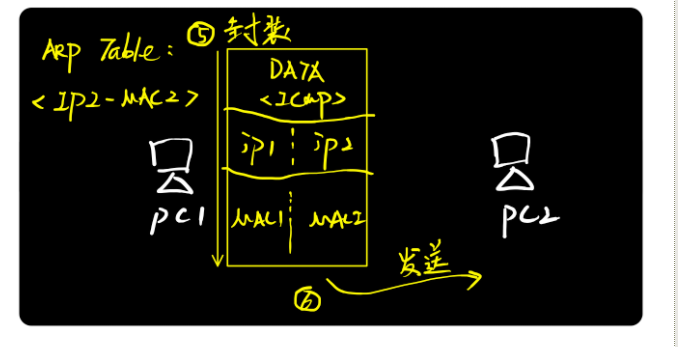 ARP Table:
<IP2-MAC2>
⑤ 封装
DATA
<ICMP>
ip1 ip2
MAC1 MAC2
PC1
PC2
发送
⑥